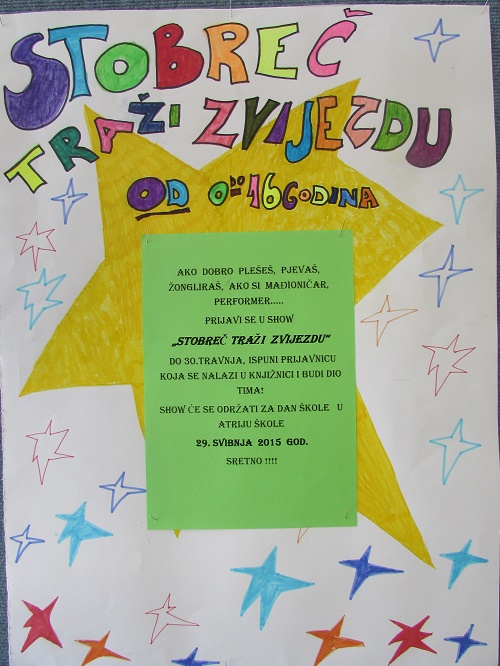 STOBREČ
TRAŽI ZVIJEZDU
OD 0 DO 16 GODINA
AKO DOBRO PLEŠEŠ, PJEVAŠ,
ŽONGLIRAŠ, AKO SI MAĐIONIČAR,
PERFORMER.....
PRIJAVI SE U SHOW
„STOBREČ TRAŽI ZVIJEZDU"
DO 30.TRAVNJA, ISPUNI PRIJAVNICU
KOJA SE NALAZI U KNJIŽNICI I BUDI DIO
TIMA!
SHOW ĆE SE ODRŽATI ZA DAN ŠKOLE U
ATRIJU ŠKOLE
29. SVIBNJA 2015 GOD.
SRETNO !!!!